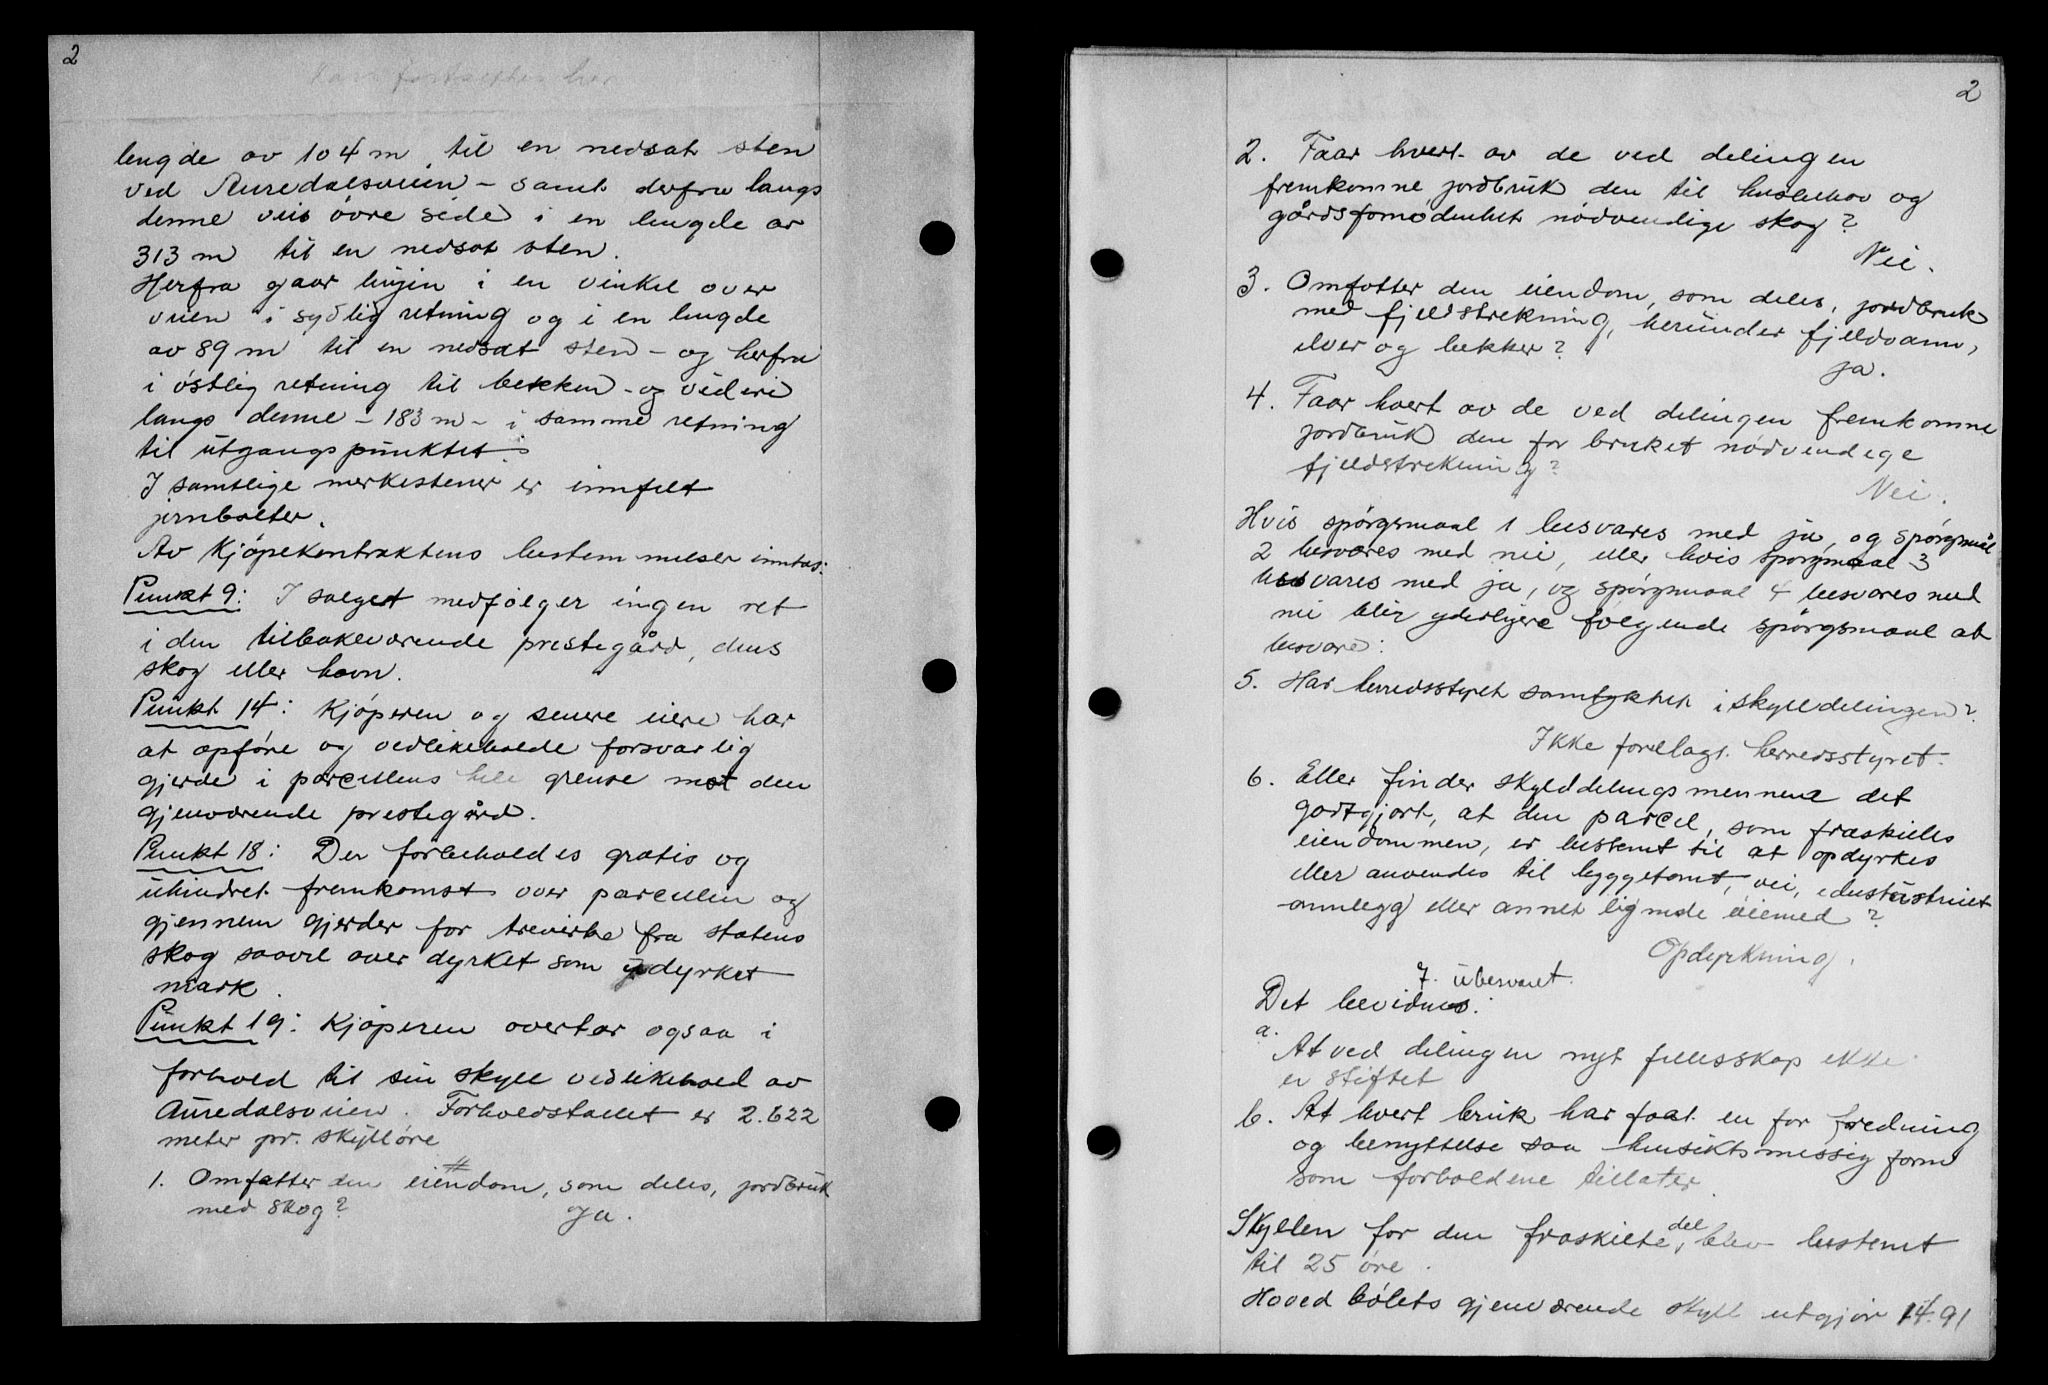 2
lengde av 104 m til en nedsat sten
ved Auredalsveien - samt derfra langs
denne veis övre side i en lengde av
313 m til en nedsat sten.
Herfra gaar linjen i en vinkel over
veien i sydlig retning og i en lengde
av 89 m til en nedsat sten - og herfra
i östlig retning til bekken - og videre
langs denne - 183 m - i samme retning
til utgangspunktet
I samtlige merkestener er innfelt
jernbolter.
Av Kjöpekontraktens bestemmelser inntas:
Punkt 9: I salget medfølger ingen ret
i den tilbakeværende prestegård, dens
skog eller havn.
Punkt 14: Kjöperen og senere eiere har
at opföre og vedlikeholde forsvarlig
gjerde i parcellens hele grense mot den
gjenværende prestegård.
Punkt 18: Der forbeholdes gratis og
uhindret fremkomst over parcellen og
gjennem gjerder for trevirke fra statens
skog saavel over dyrket som udyrket
mark.
Punkt 19: Kjöperen overtar ogsaa i
forhold til sin skyll vedlikehold av
Auredalsveien. Forholdstallet er 2.622
meter pr. skylløre
1. Omfatter den eiendom, som deles, jordbruk
med skog? Ja.
2
2. Faar hvert av de ved delingen
fremkomne jordbruk den til husbehov og
gårdsfornödenhet nödvendige skog?
Nei.
3. Omfatter den eiendom, som deles, jordbruk
med fjellstrekning, herunder fjellvann,
elver og bekker?
Ja.
4. Faar hvert av de ved delingen fremkomne
jordbruk den for bruket nödvendige
fjellstrekning?
Nei.
Hvis spörgsmaal 1 besvares med ja, og spörgsmål
2 besvares med nei, eller hvis spörgsmaal 3
besvares med ja, og spörgsmaal 4 besvares med
nei blir yderligere følgende spörgsmaal at
besvare:
5. Har herredsstyret samtykket i skylldelingen?
Ikke forelagt herredsstyret.
6. Eller finder skylddelingsmennene det
godtgjort, at den parcel, som fraskilles
eiendommen, er bestemt til at opdyrkes
eller anvendes til byggetomt, vei, industrielt
annlegg eller annet lignende öiemed?
Opdyrkning.
7. ubesvaret.
Det bevidnes:
a.
At ved delingen nyt fellesskap ikke
er stiftet
b. At hvert bruk har faat en for fredning
og benyttelse saa hensiktsmessig form
som forholdene tillater
Skyllen for den fraskilte del blev bestemt
til 25 øre.
Hovedbölets gjenværende skyll utgjör 14.91